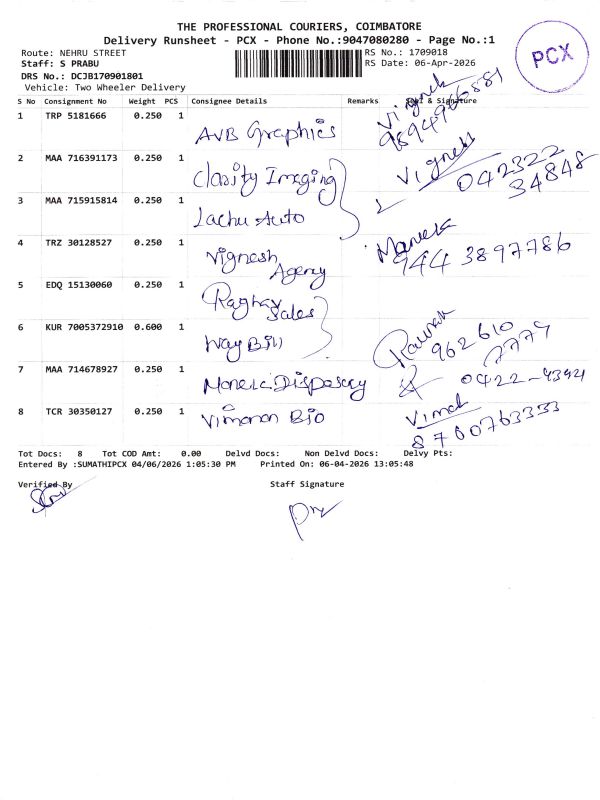 THE PROFESSIONAL COURIERS, COIMBATORE
Delivery Runsheet - PCX - Phone No.:9047080280 - Page No.:1
Route: NEHRU STREET
RS No.: 1709018
Staff: S PRABU
RS Date: 06-Apr-2026
DRS No.: DCJB170901801
Vehicle: Two Wheeler Delivery
PCX
S No Consignment No Weight PCS Consignee Details Remarks & Signature
1 TRP 5181666 0.250 1 AVB Graphics Vignesh 9894966881
2 MAA 716391173 0.250 1 Clarity Imaging Vignesh 042322 34848
3 MAA 715915814 0.250 1 Lachu Auto
4 TRZ 30128527 0.250 1 Vignesh Agency 944 3897786
5 EDQ 15130060 0.250 1 Raghav Sales
6 KUR 7005372910 0.600 1 Way Bill 962 610 7779
7 MAA 714678927 0.250 1 0422-4394
8 TCR 30350127 0.250 1 Bio Vimal 8700763333
Tot Docs: 8 Tot COD Amt: 0.00 Delvd Docs: Non Delvd Docs: Delvy Pts:
Entered By :SUMATHIPCX 04/06/2026 1:05:30 PM Printed On: 06-04-2026 13:05:48
Verified By Staff Signature